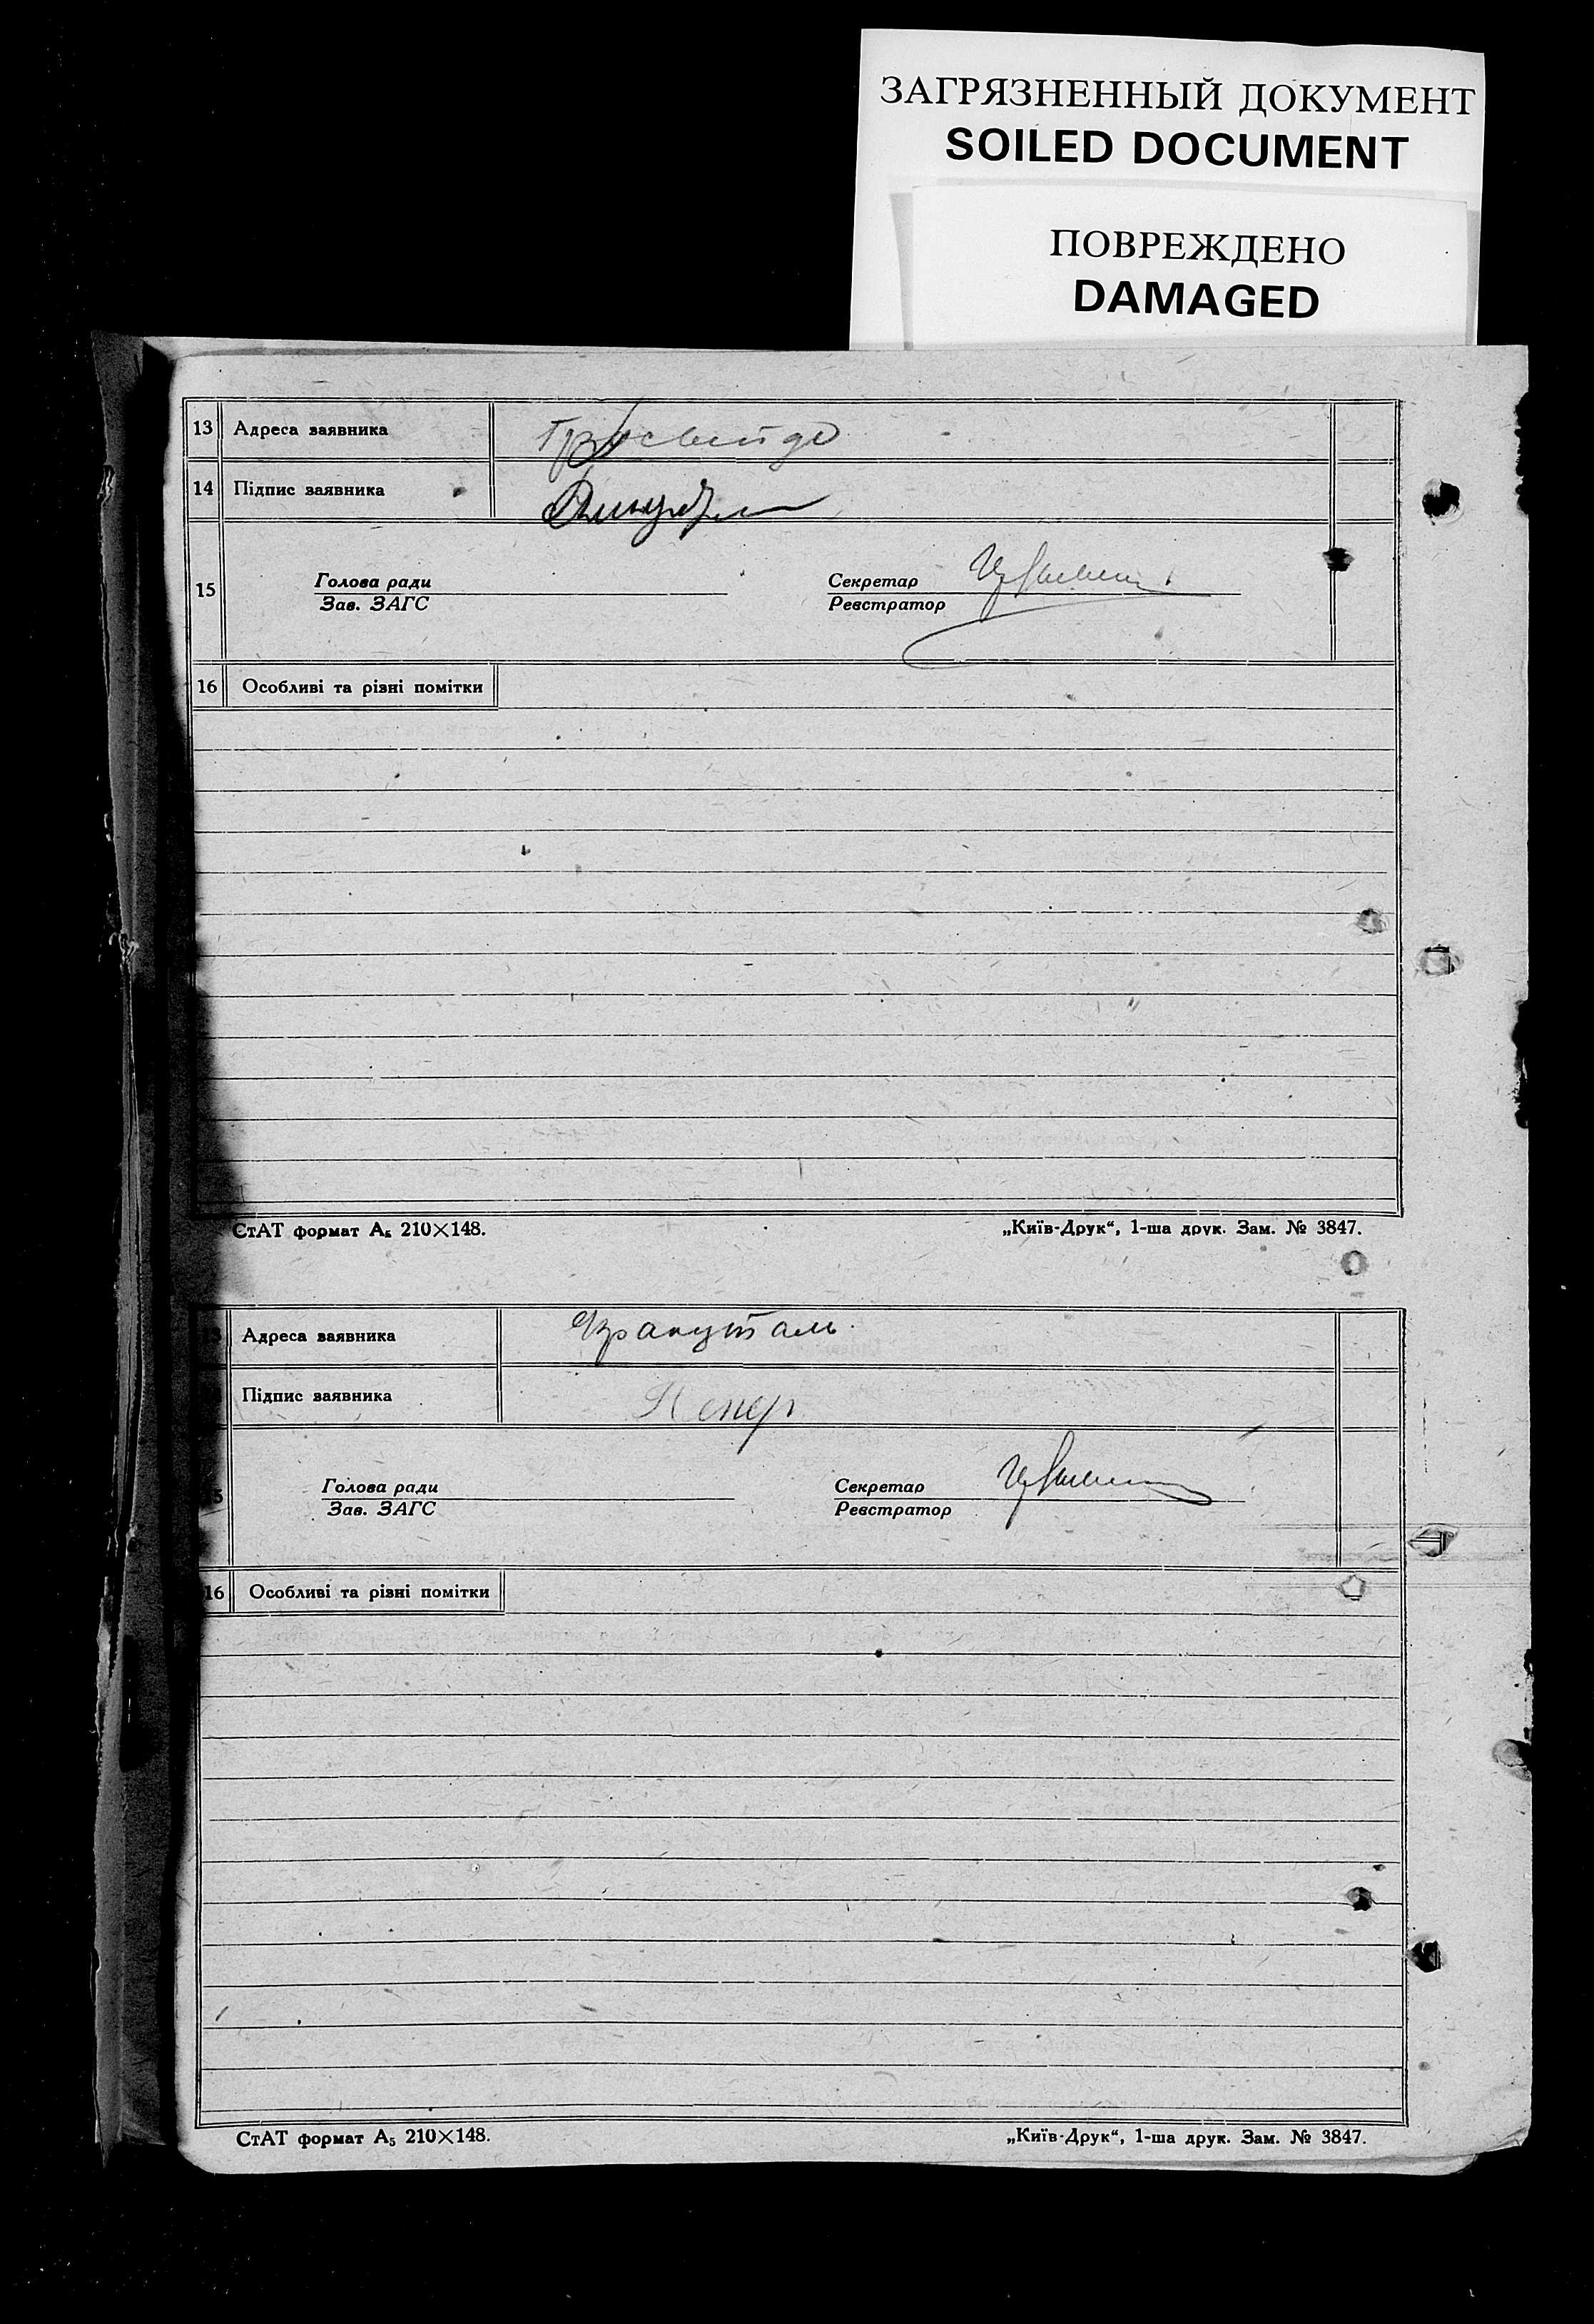 ЗАГРЯЗНЕННЫЙ ДОКУМЕНТ
SOILED DOCUMENT
ПОВРЕЖДЕНО
DAMAGED
13 Адреса заявника
14 Підпис заявника
15
Голова ради
Зав. ЗАГС
Секретар
Реєстратор
16 Особливі та різні помітки
СтАТ формат А5 210×148.
„Київ-Друк“, 1-ша друк. Зам. № 3847.
Адреса заявника
Підпис заявника
Голова ради
Зав. ЗАГС
Секретар
Реєстратор
16 Особливі та різні помітки
СтАТ формат А5 210×148.
„Київ-Друк“, 1-ша друк. Зам. № 3847.